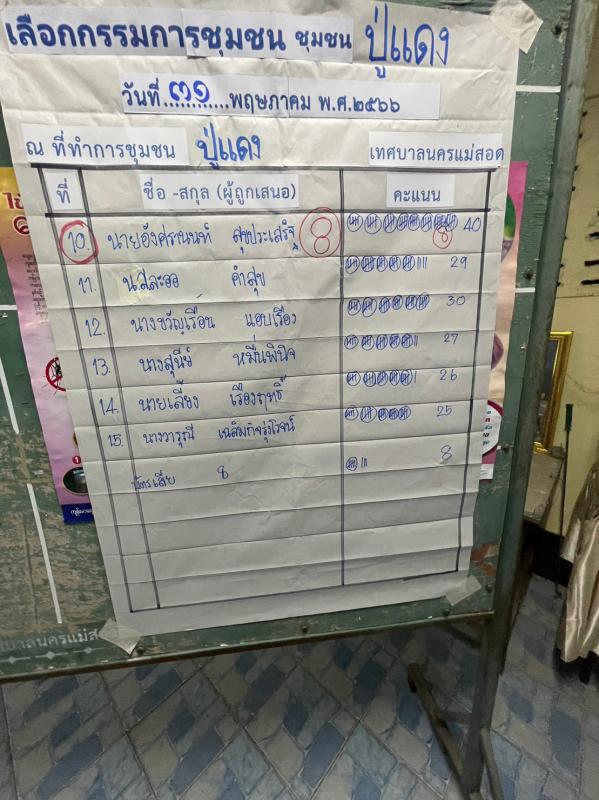 เลือกกรรมการชุมชน ชุมชน ปู่แดง
วันที่...๓๑......พฤษภาคม พ.ศ.๒๕๖๖
ณ ที่ทำการชุมชน ปู่แดง เทศบาลนครแม่สอด
ที่ ชื่อ -สกุล (ผู้ถูกเสนอ) คะแนน
10. นายอังศรานนท์ สุขประเสริฐ 8 8 40
11. น.ส.ละออ คำสุข 29
12. นางขวัญเรือน แอบเรือง 30
13. นางสุนีย์ หมื่นพินิจ 27
14. นายเลี้ยง เรืองฤทธิ์ 26
15. นางวารุณี เฉลิมกิจรุ่งโรจน์ 25
บัตรเสีย 8 8